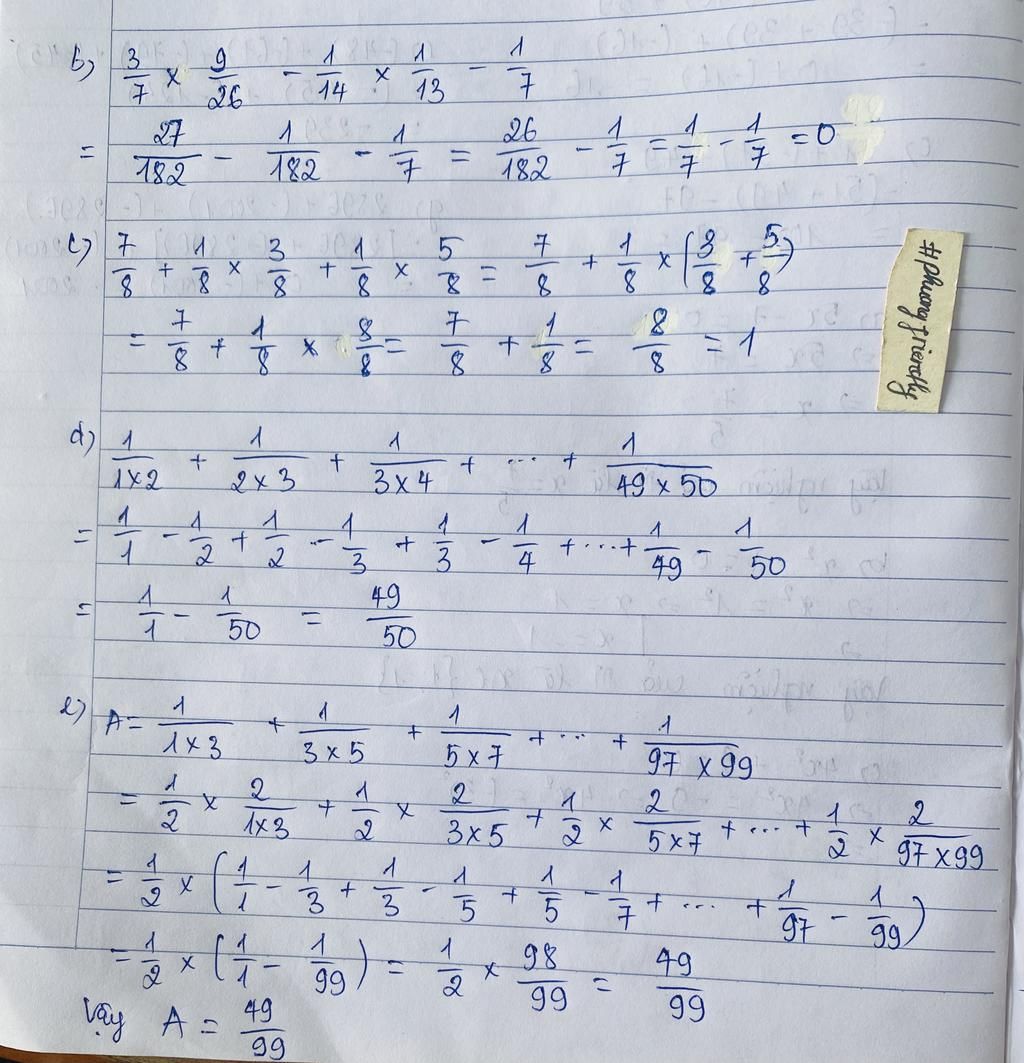 b) 3/7 × 9/26 - 1/14 × 1/13 - 1/7
= 27/182 - 1/182 - 1/7 = 26/182 - 1/7 = 1/7 - 1/7 = 0
c) 7/8 + 1/8 × 3/8 + 1/8 × 5/8 = 7/8 + 1/8 × (3/8 + 5/8)
= 7/8 + 1/8 × 8/8 = 7/8 + 1/8 = 8/8 = 1
#phuongfriendly
d) 1/(1×2) + 1/(2×3) + 1/(3×4) + ... + 1/(49×50)
= 1/1 - 1/2 + 1/2 - 1/3 + 1/3 - 1/4 + ... + 1/49 - 1/50
= 1/1 - 1/50 = 49/50
e) A = 1/(1×3) + 1/(3×5) + 1/(5×7) + ... + 1/(97×99)
= 1/2 × 2/(1×3) + 1/2 × 2/(3×5) + 1/2 × 2/(5×7) + ... + 1/2 × 2/(97×99)
= 1/2 × (1/1 - 1/3 + 1/3 - 1/5 + 1/5 - 1/7 + ... + 1/97 - 1/99)
= 1/2 × (1/1 - 1/99) = 1/2 × 98/99 = 49/99
Vậy A = 49/99